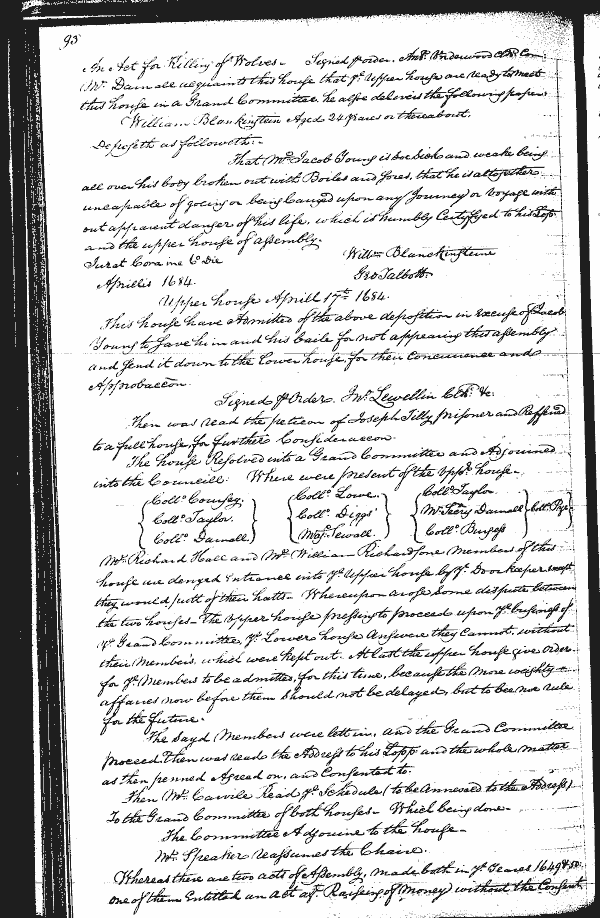 95
An Act for Killing of Wolves - Signed p order. Antº Underwood Clk Com:
Mr. Darnall acquaints this house that ye. Upper house are ready to meet
this house in a Grand Committee, he also delivers the following paper
William Blankinstein Aged 24 Yeares or thereabout.
Deposeth as followeth:-
That Mr. Jacob Young is soe Sick and weake being
all over his body broken out with Boiles and Sores, that he is altogether
uncapable of goeing or being Carryed upon any Journey or Voyage with
out apparent danger of his life, which is humbly Certifyed to his Lopp.
and the upper house of assembly.
Jurat Coram me 6º Die Willm. Blanckinsteine
Aprillis 1684. Geo Talbott.
Upper house Aprill 17th. 1684.
This house have Admitted of the above deposition in excuse of Jacob
Young to save him and his baile for not appearing this assembly
and send it down to the Lower house for their Concurrence and
Approbaccon.
Signed p Order. Jno. Lewellin Clk: &c.
Then was read the peticon of Joseph Tilly prisoner and Reffered
to a full house for further Consideraccon.
The house Resolved into a Grand Committee and Adjourned
into the Councill: Where were present of the uppr. house.
Collo. Coursey. Collo. Lowe. Collo. Taylor.
Collo. Taylor. Collo. Diggs Mr. Henry Darnall Collo. Pye
Collo. Darnall Majr. Sewall. Collo. Burgess
Mr. Richard Hall and Mr. William Richardsone Members of this
house was denyed entrance into ye. Upper house by ye. Doorkeeper except
they would putt of their hatts - Whereupon arose some dispute between
the two houses - the Upper house pressing to proceed upon ye. business of
ye. Grand Committee, ye. Lower house Answere they Cannot, without
their Members, which were kept out. At last the upper house give order
for ye. Members to be admitted, for this time, because the more weighty
affaires now before them should not be delayed, but to bee noe rule
for the future.
The sayd Members were lett in, and the Grand Committee
proceed. Then was read the Address to his Lopp and the whole matter
as then penned Agreed on, and Consented to.
Then Mr. Carvile Read ye. Schedule (to be Annexed to the Address)
To the Grand Committee of both houses - Which being done -
The Committee Adjourne to the house -
Mr. Speaker reassumes the Chaire.
Whereas there are two acts of Assembly, made both in ye. Yeares 1649 & 50
one of them Entitled an Act agt. Raising of Money without the Consent